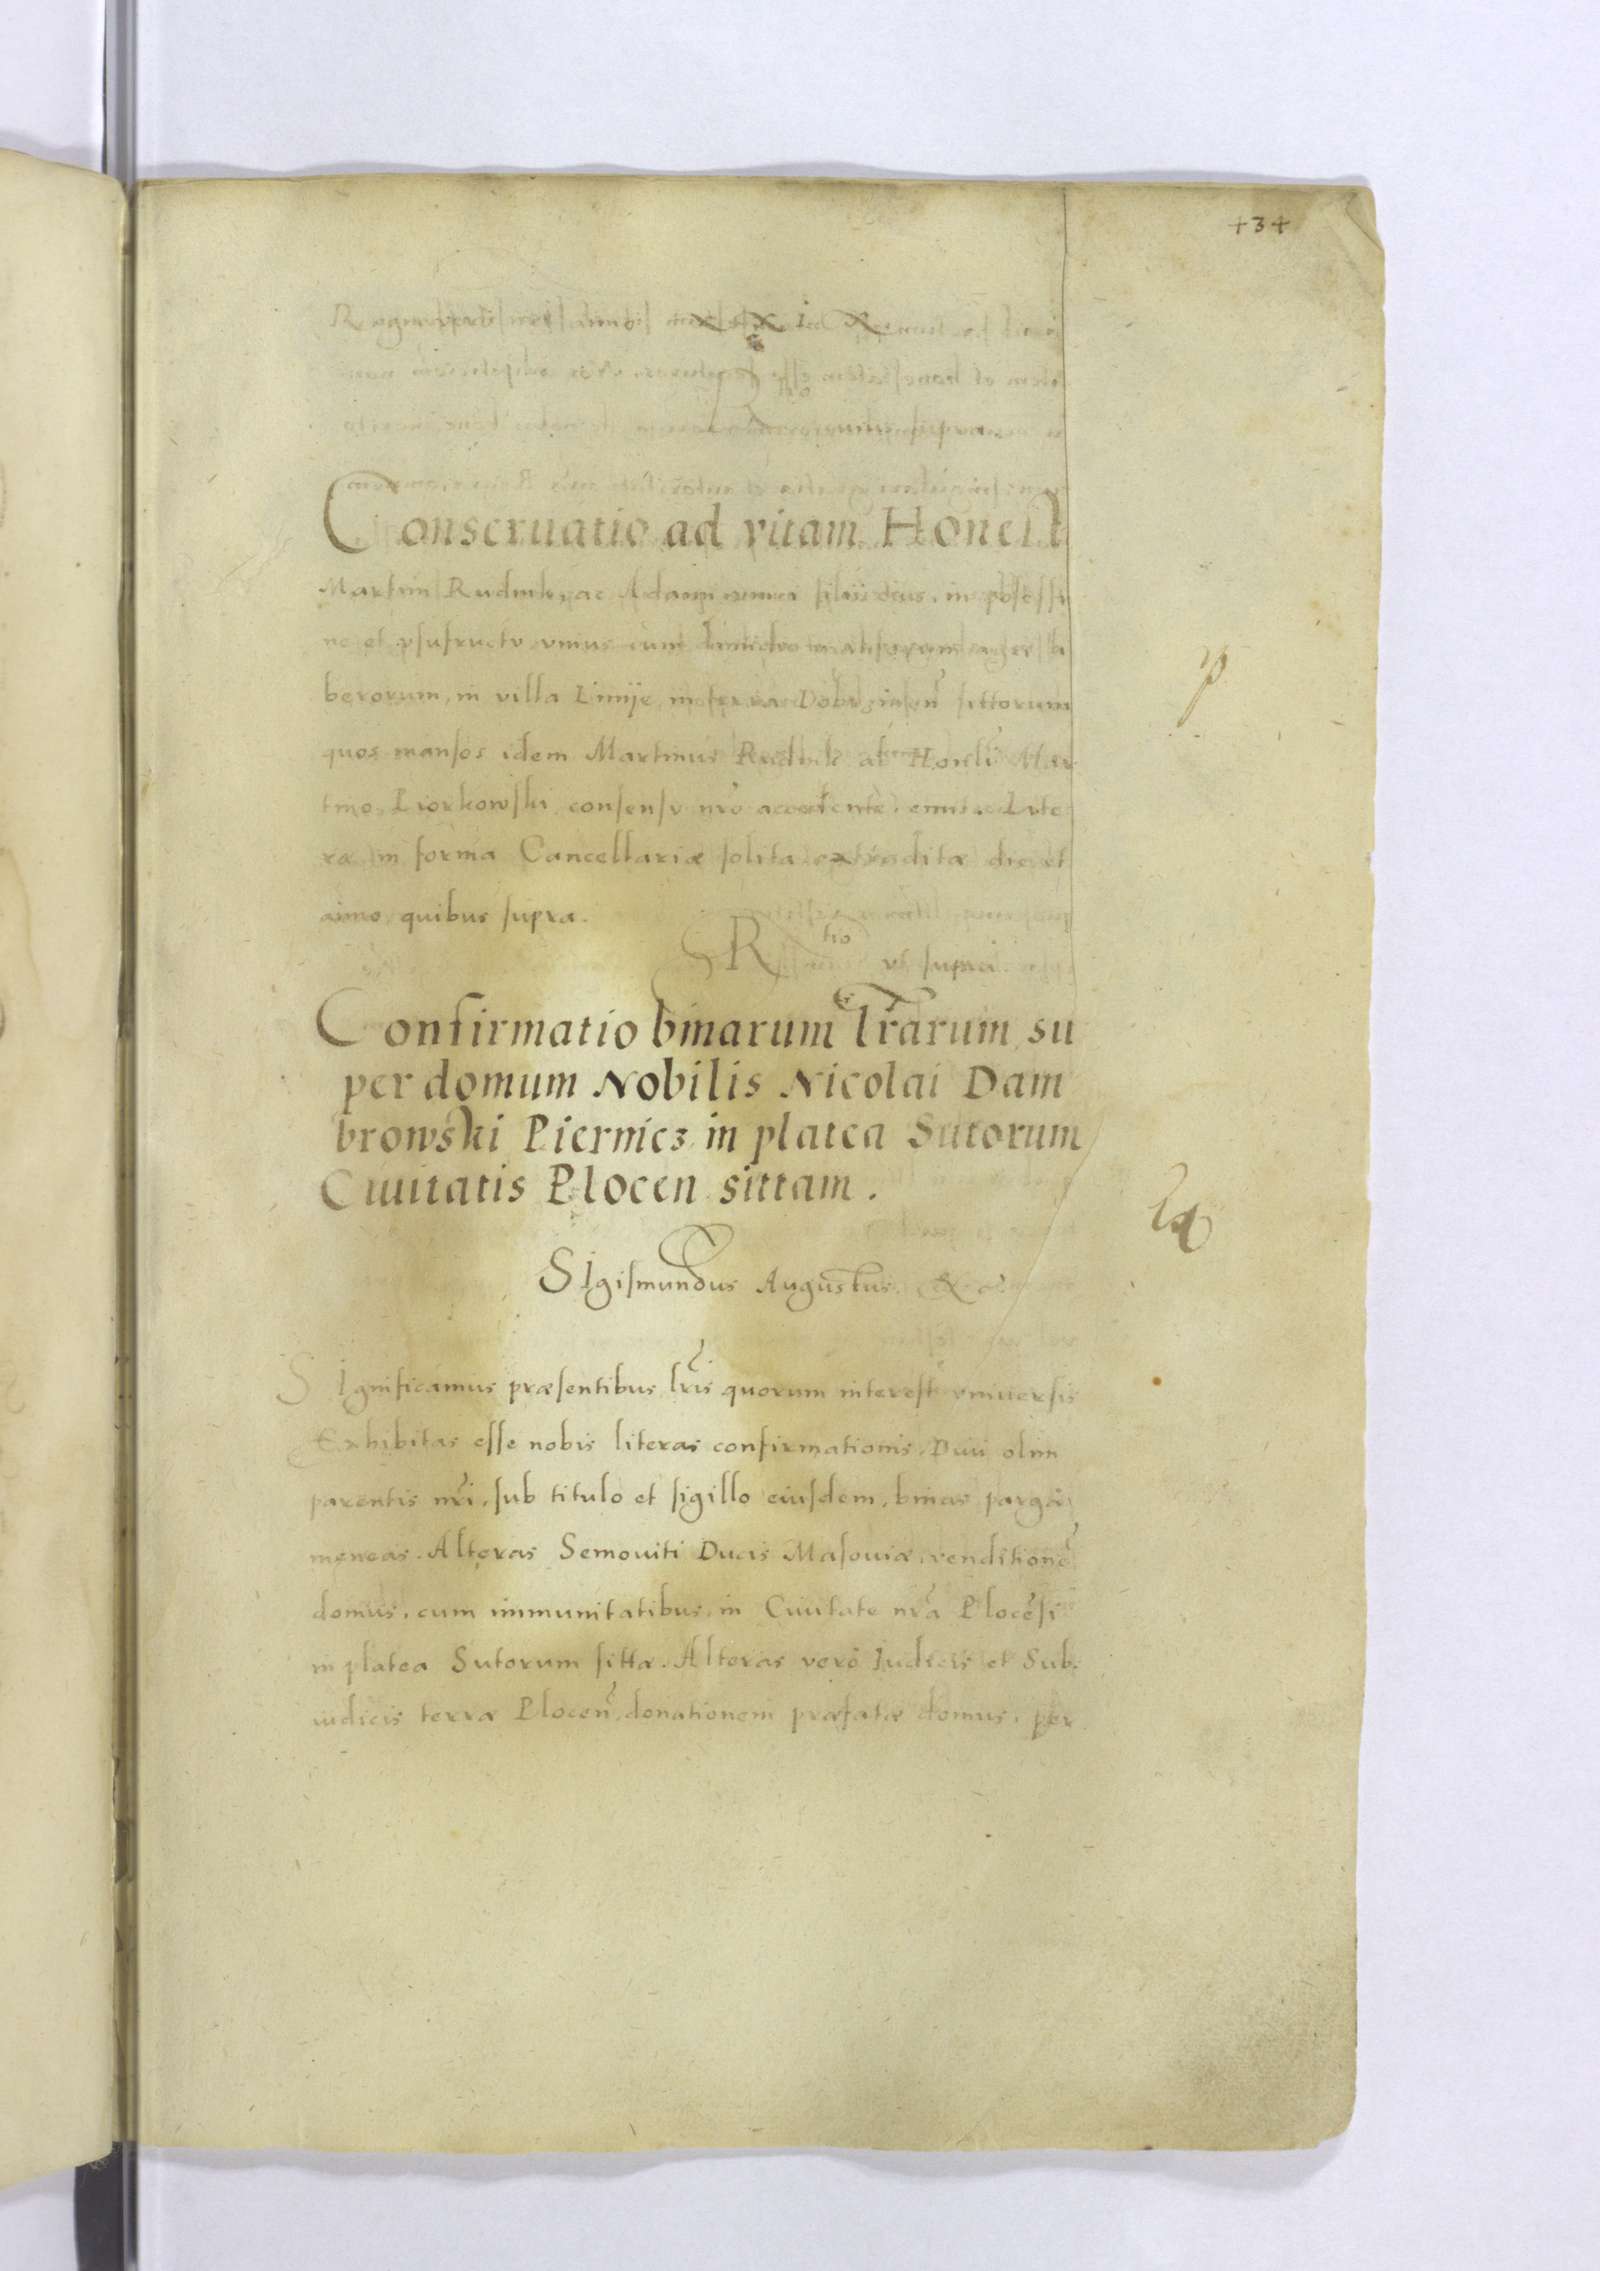 434
Regni vero nri
Conseruatio ad vitam Honest
Martini Rudnik, ac Adami filii eius, in possessi
ne et vsufructu vnius cum dimidio mansorum agri li
berorum, in villa Linije in terra Dobrzinen sittorum
quos mansos idem Martinus Rudnik ab Honesti Mar
tino Piorkowski consensu nro accedente, emit. Lite
ræ in forma Cancellariæ solita extraditæ die et
anno quibus supra.
R tio vt supra
Confirmatio binarum lrarum su
per domum Nobilis Nicolai Dam
browski Piernicz in platea Sutorum
Ciuitatis Plocen sittam.
SIgismundus Augustus &c
SIgnificamus præsentibus lris quorum interest vniuersis
Exhibitas esse nobis literas confirmationis Diui olim
parentis nri, sub titulo et sigillo eiusdem, binas parga
meneas. Alteras Semouiti Ducis Masouiæ, venditione
domus, cum immunitatibus, in Ciuitate nra Plocesi
in platea Sutorum sittæ. Alteras vero Iudicis et Sub
iudicis terræ Plocen, donationem præfatæ domus, per